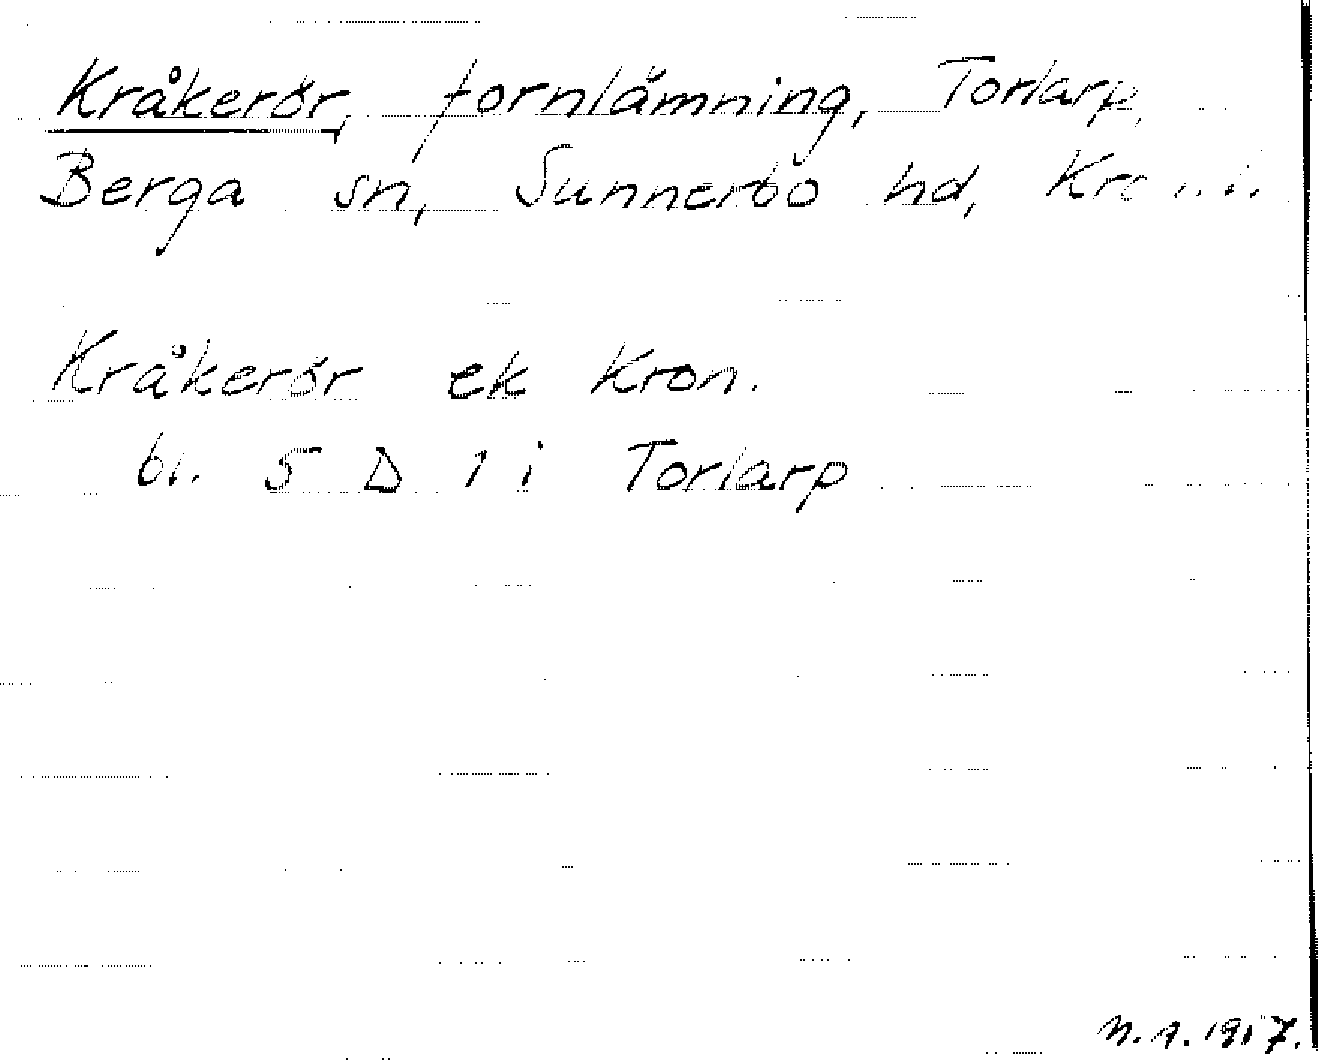 Kråkerör, fornlämning, Torlarp,
Berga sn, Sunnerbo hd,
Kråkerör ek Kron.
bl. 5 D 1 i Torlarp